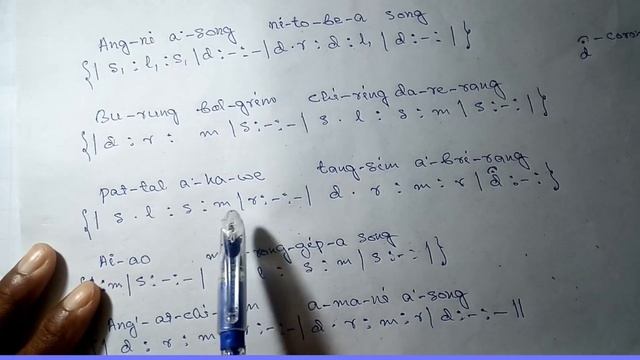 Ang-ni a·-song ni-to-be-a song
{| s₁ : l₁ : s₁ | d : - : - | d · r : d : l₁ | d : - : | }
d̂ -coron
Bu-rung bol-grim chi-ring da-re-rang
{| d : r : m | s : - : - | s · l : s : m | s : - : | }
pat-tal a·-ka-we tang-sim a·-bri-rang
{| s · l : s : m | r : - : - | d · r : m : r | d̂ : - : }
Ai-ao rong-gép-a song
: m | s : - : - | l : s : m | s : - : | }
a-ma-ni a·-song
| d : r : m : - : - | d · r : m : r | d : - : - ||